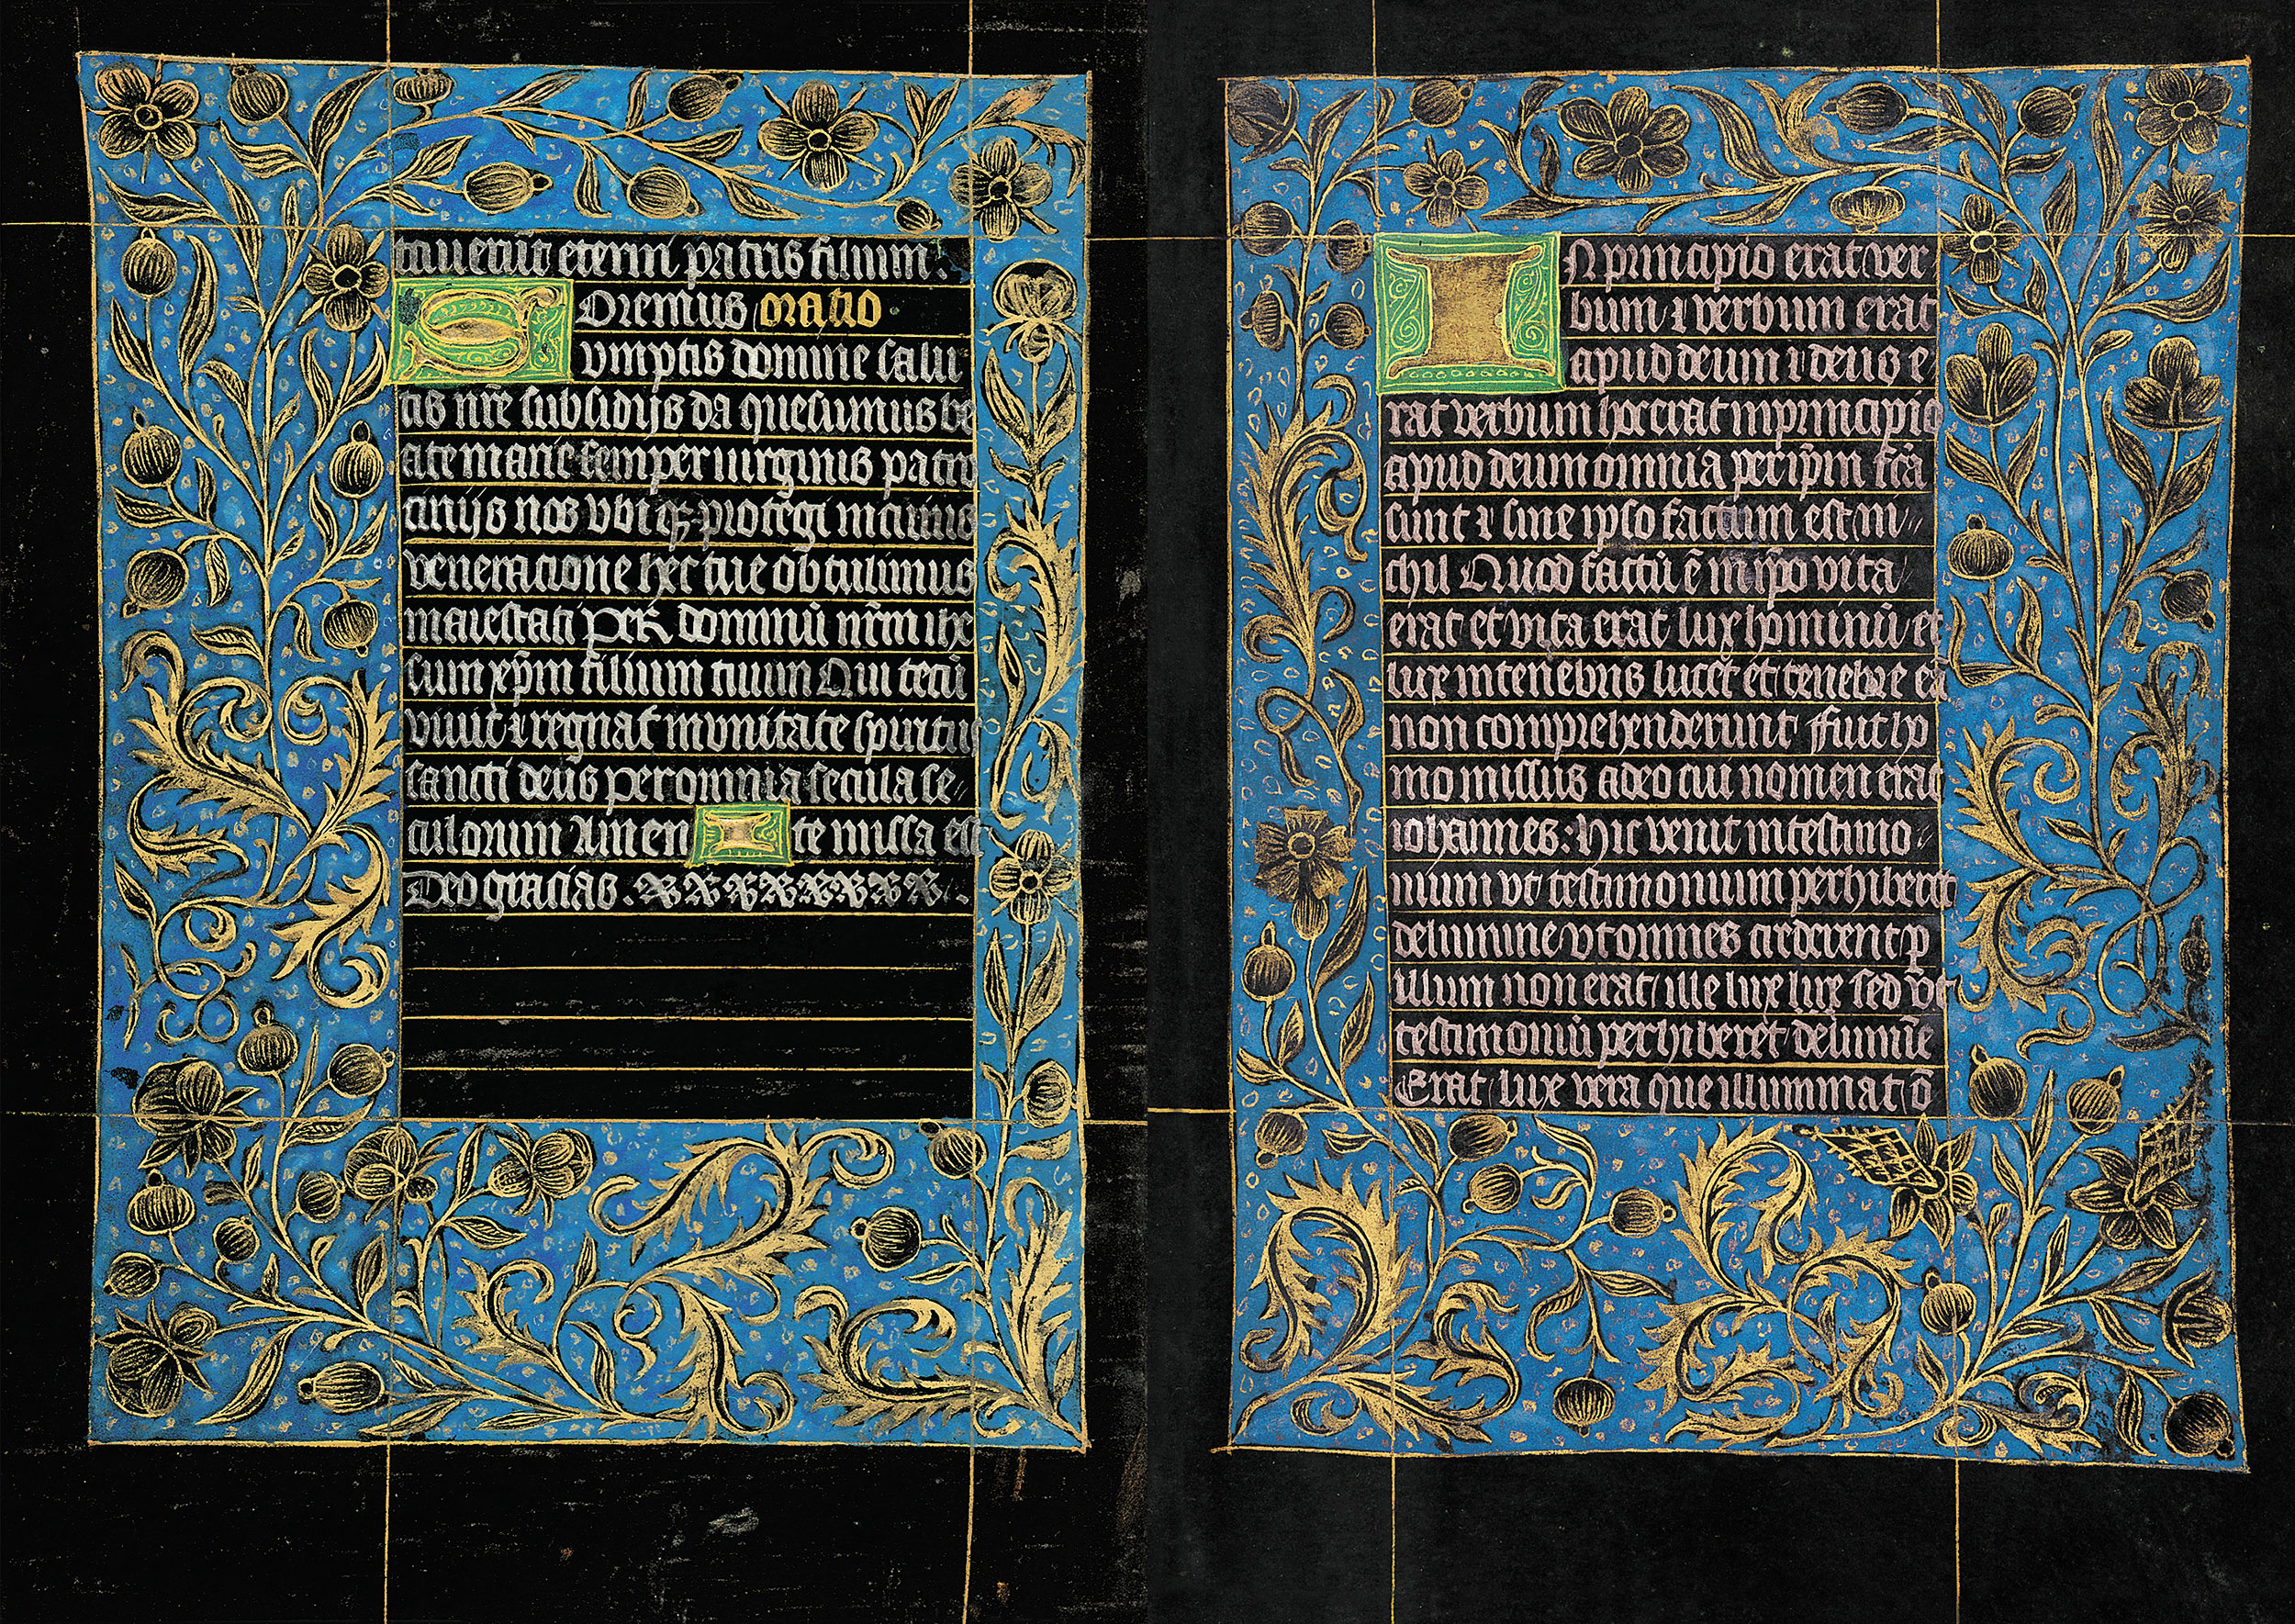 tauerūt eterni patris filium.
Oremus oratio
Sumptis domine salu
tis nr̄e subsidijs da quesumus be
ate marie semper uirginis patro
cinijs nos vbiqꝫ protegi in cuius
veneracione hec tue obtulimus
maiestati Per dominū nr̄m ihe
sum xp̄m filium tuum Qui tecū
viuit ⁊ regnat in vnitate spiritus
sancti deus per omnia secula se
culorum Amen Ite missa est
Deo gracias.
IN principio erat ver
bum ⁊ verbum erat
apud deum ⁊ deus e
rat verbum hoc erat in principio
apud deum omnia per ip̄m fc̄a
sunt ⁊ sine ipso factum est ni
chil Quod factū ē in ip̄o vita
erat et vita erat lux hominū et
lux in tenebris lucet et tenebre eā
non comprehenderunt Fuit ho
mo missus a deo cui nomen erat
iohannes: hic venit in testimo
nium vt testimonium perhiberet
de lumine vt omnes crederent p̲
illum non erat ille lux lux sed vt
testimoniū perhiberet de lumīe
Erat lux vera que illuminat ō